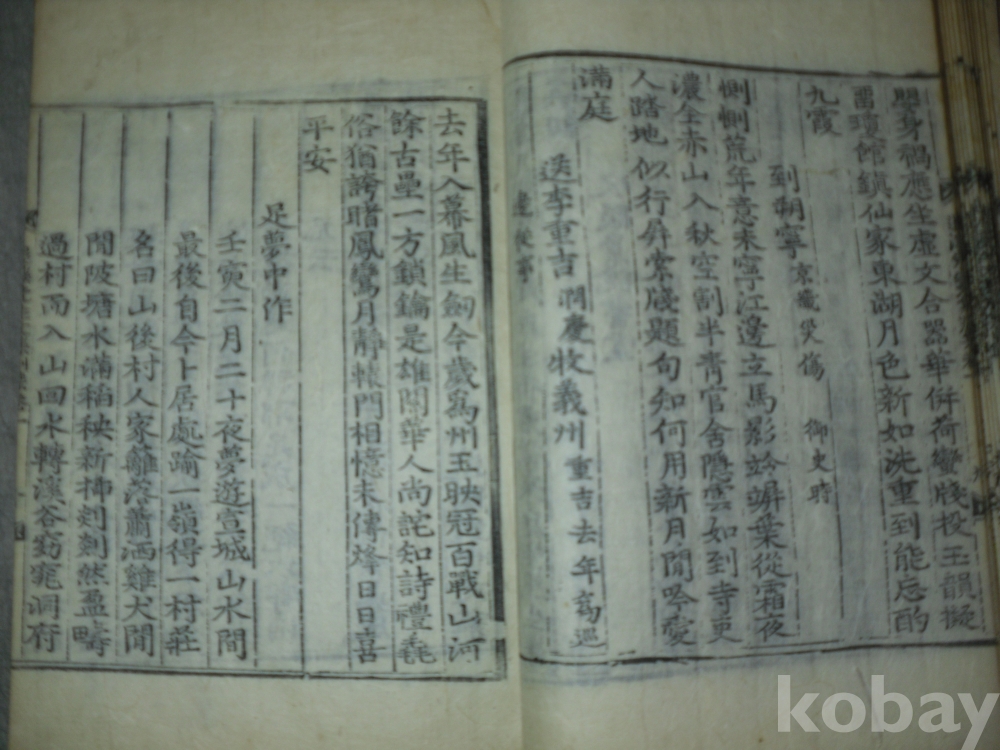 身禍應生虛文合器華倂荷蠻牋投玉韻擬
雷瓊館鎖仙家東湖月色新如洗重到能忘酌
九霞
到朔寧 京畿災傷 御史時
惻惻荒年意未寧江邊立馬影竛竮葉從霜夜
濃全赤山入秋空割半靑官舍隱雲如到寺吏
人踏地似行屛索牋題句知何用新月閒吟愛
滿庭
送李重吉 慶 牧義州 重吉去年爲巡
去年入幕風生劒今歲爲州玉映冠百戰山河
餘古壘一方鎖鑰是雄關華人尙詫知詩禮毳
俗猶誇睹鳳鸞月靜轅門相憶未傳烽日日喜
平安
足夢中作
壬寅二月二十夜夢遊宣城山水間
最後自今卜居處踰一嶺得一村莊
名曰山後村人家籬落蕭洒雞犬閒
閒陂塘水滿稻秧新揷剡剡然盈疇
過村而入山回水轉溪谷窈窕洞府
kobay